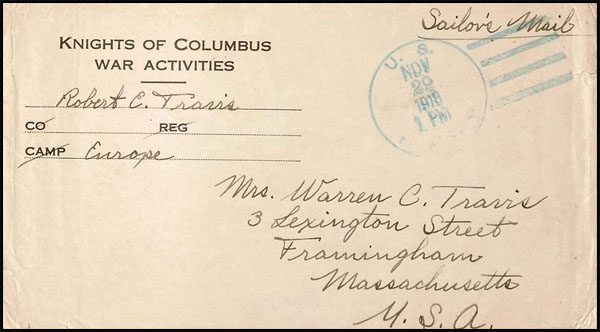 Sailor's Mail
KNIGHTS OF COLUMBUS
WAR ACTIVITIES
Robert C. Travis
CO REG
CAMP Europe
U. S.
NOV
20
1918
1 PM
Mrs. Warren C. Travis
3 Lexington Street
Framingham
Massachusetts
U. S. A.